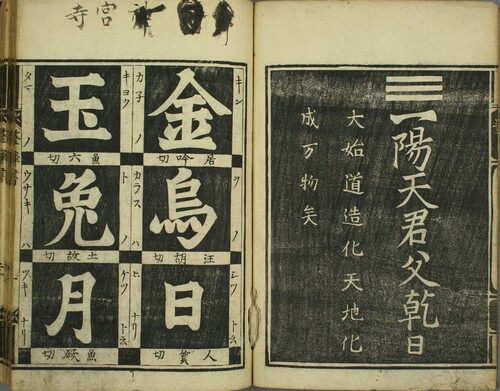 ☰一陽天君父乾日
大始道造化天地化
成万物矣
宮寺
キン ヲ ノ シツ トス
金
居吟切
烏
汪胡切
日
人質切
カ子 ノ カラス ハ ヒ ナリ
キヨク ト ノ ケツ トス
玉
魚六切
兔
土故切
月
魚厥切
タマ ノ ウサキ ハ ツキ ナリ